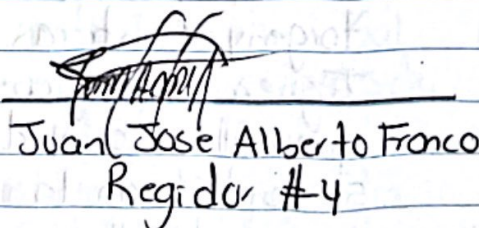 Juan Jose Alberto Franco
Regidor #4